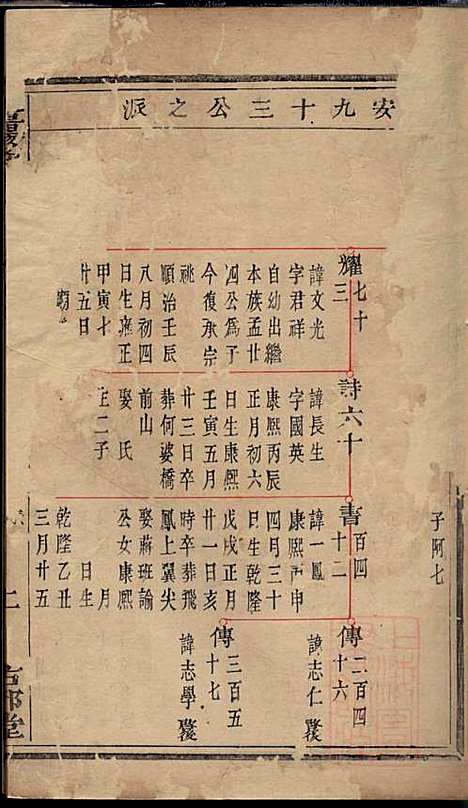 安九十三公之派
子阿七
耀七十三
諱文光
字君祥
自幼出繼
本族孟廿
四公爲子
今復承宗
祧
順治壬辰
八月初四
日生雍正
甲寅七
廿五日
詩六十
諱長生
字國英
康熙丙辰
正月初六
日生康熙
壬寅五月
廿三日卒
葬何婆橋
前山
娶 氏
生二子
書百四十二
諱一鳳
康熙 申
四月三十
日生乾隆
戊戌正月
廿一日亥
時卒葬飛
鳳上翼尖
娶蔣班諭
公女康熙
月
日生
乾隆乙丑
三月廿五
傳二百四十六
諱志仁
傳三百五十七
諱志學
二